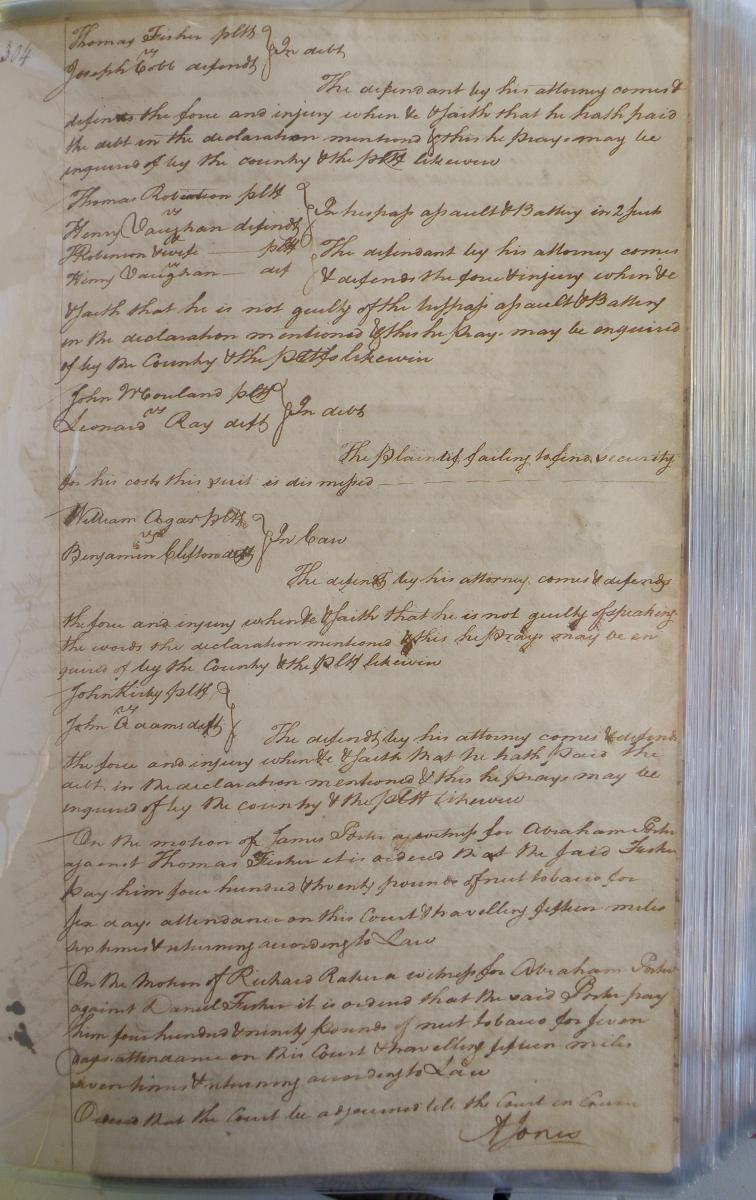 304
Thomas Fisher plt
vs } In debt
Joseph Cobb defendt
The defendant by his attorney comes &
defends the force and injury when &c & saith that he hath paid
the debt in the declaration mentioned & this he prays may be
inquired of by the country & the plt likewise
Thomas Robertson plt
vs } In trespass assault & Battery in 2 suits
Henry Vaughan defendt
Robinson & wife — plt
vs
Henry Vaughan — def
The defendant by his attorney comes
& defends the force & injury when &c
& saith that he is not guilty of the trespass assault & Battery
in the declaration mentioned & this he prays may be enquired
of by the County & the pltfs likewise
John plt
vs } In debt
Leonard Ray deft
The plaintif failing to find security
for his costs this suit is dismissed
William plt
vs } In Case
Benjamin Clifton deft
The defendt by his attorney comes & defends
the force and injury when &c & saith that he is not guilty of speaking
the words the declaration mentioned & this he prays may be en
quired of by the County & the plt likewise
John Kirby plt
vs }
John Adams deft
The defendt by his attorney comes & defends
the force and injury when &c & saith that he hath paid the
debt in the declaration mentioned & this he prays may be
inquired of by the country & the plt likewise
On the motion of James Porter a witness for Abraham Porter
against Thomas Fisher it is ordered that the said Porter
pay him four hundred & twenty pounds of nett tobacco for
six days attendance on this Court & travelling fifteen miles
six times & returning according to Law
On the Motion of Richard a witness for Abraham Porter
against Daniel Fisher it is ordered that the said Porter pay
him four hundred & ninety pounds of nett tobacco for seven
days attendance on this Court & travelling fifteen miles
seven times & returning according to Law
Ordered that the Court be adjourned till the Court in Course
A Jones